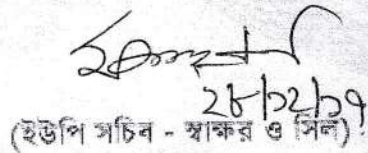 ২৮/১২/১৭
(ইউপি সচিব - স্বাক্ষর ও সিল)